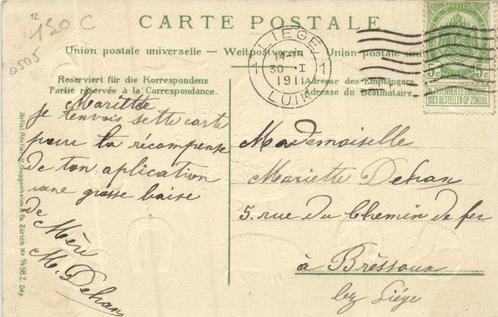 12.
130 C
0505
CARTE POSTALE
Union postale universelle – Weltpostverein –
Union postale
Reserviert für die Korrespondenz
Partie réservée à la Correspondance.
Adresse des Empfängers
Adresse du Destinataire
LIEGE
1 1
30 · I
1911
LUIK
5c 5c
NIET BESTELLEN OP ZONDAG
Mariette
je t'envois sette carte
pour la récompense
de ton aplication
une grosse baise
de Mère
M. Dehan
Mademoiselle
Mariette Dehan
5. rue du Chemin de fer
à Bréssoux
lez Liége
Guggenheim & Co. Zürich No 1458.2 Dép.